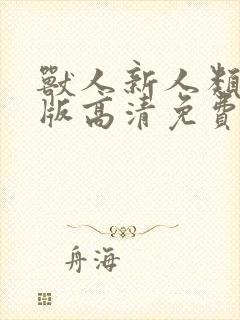 獸人新人類
版高清免費
舟海